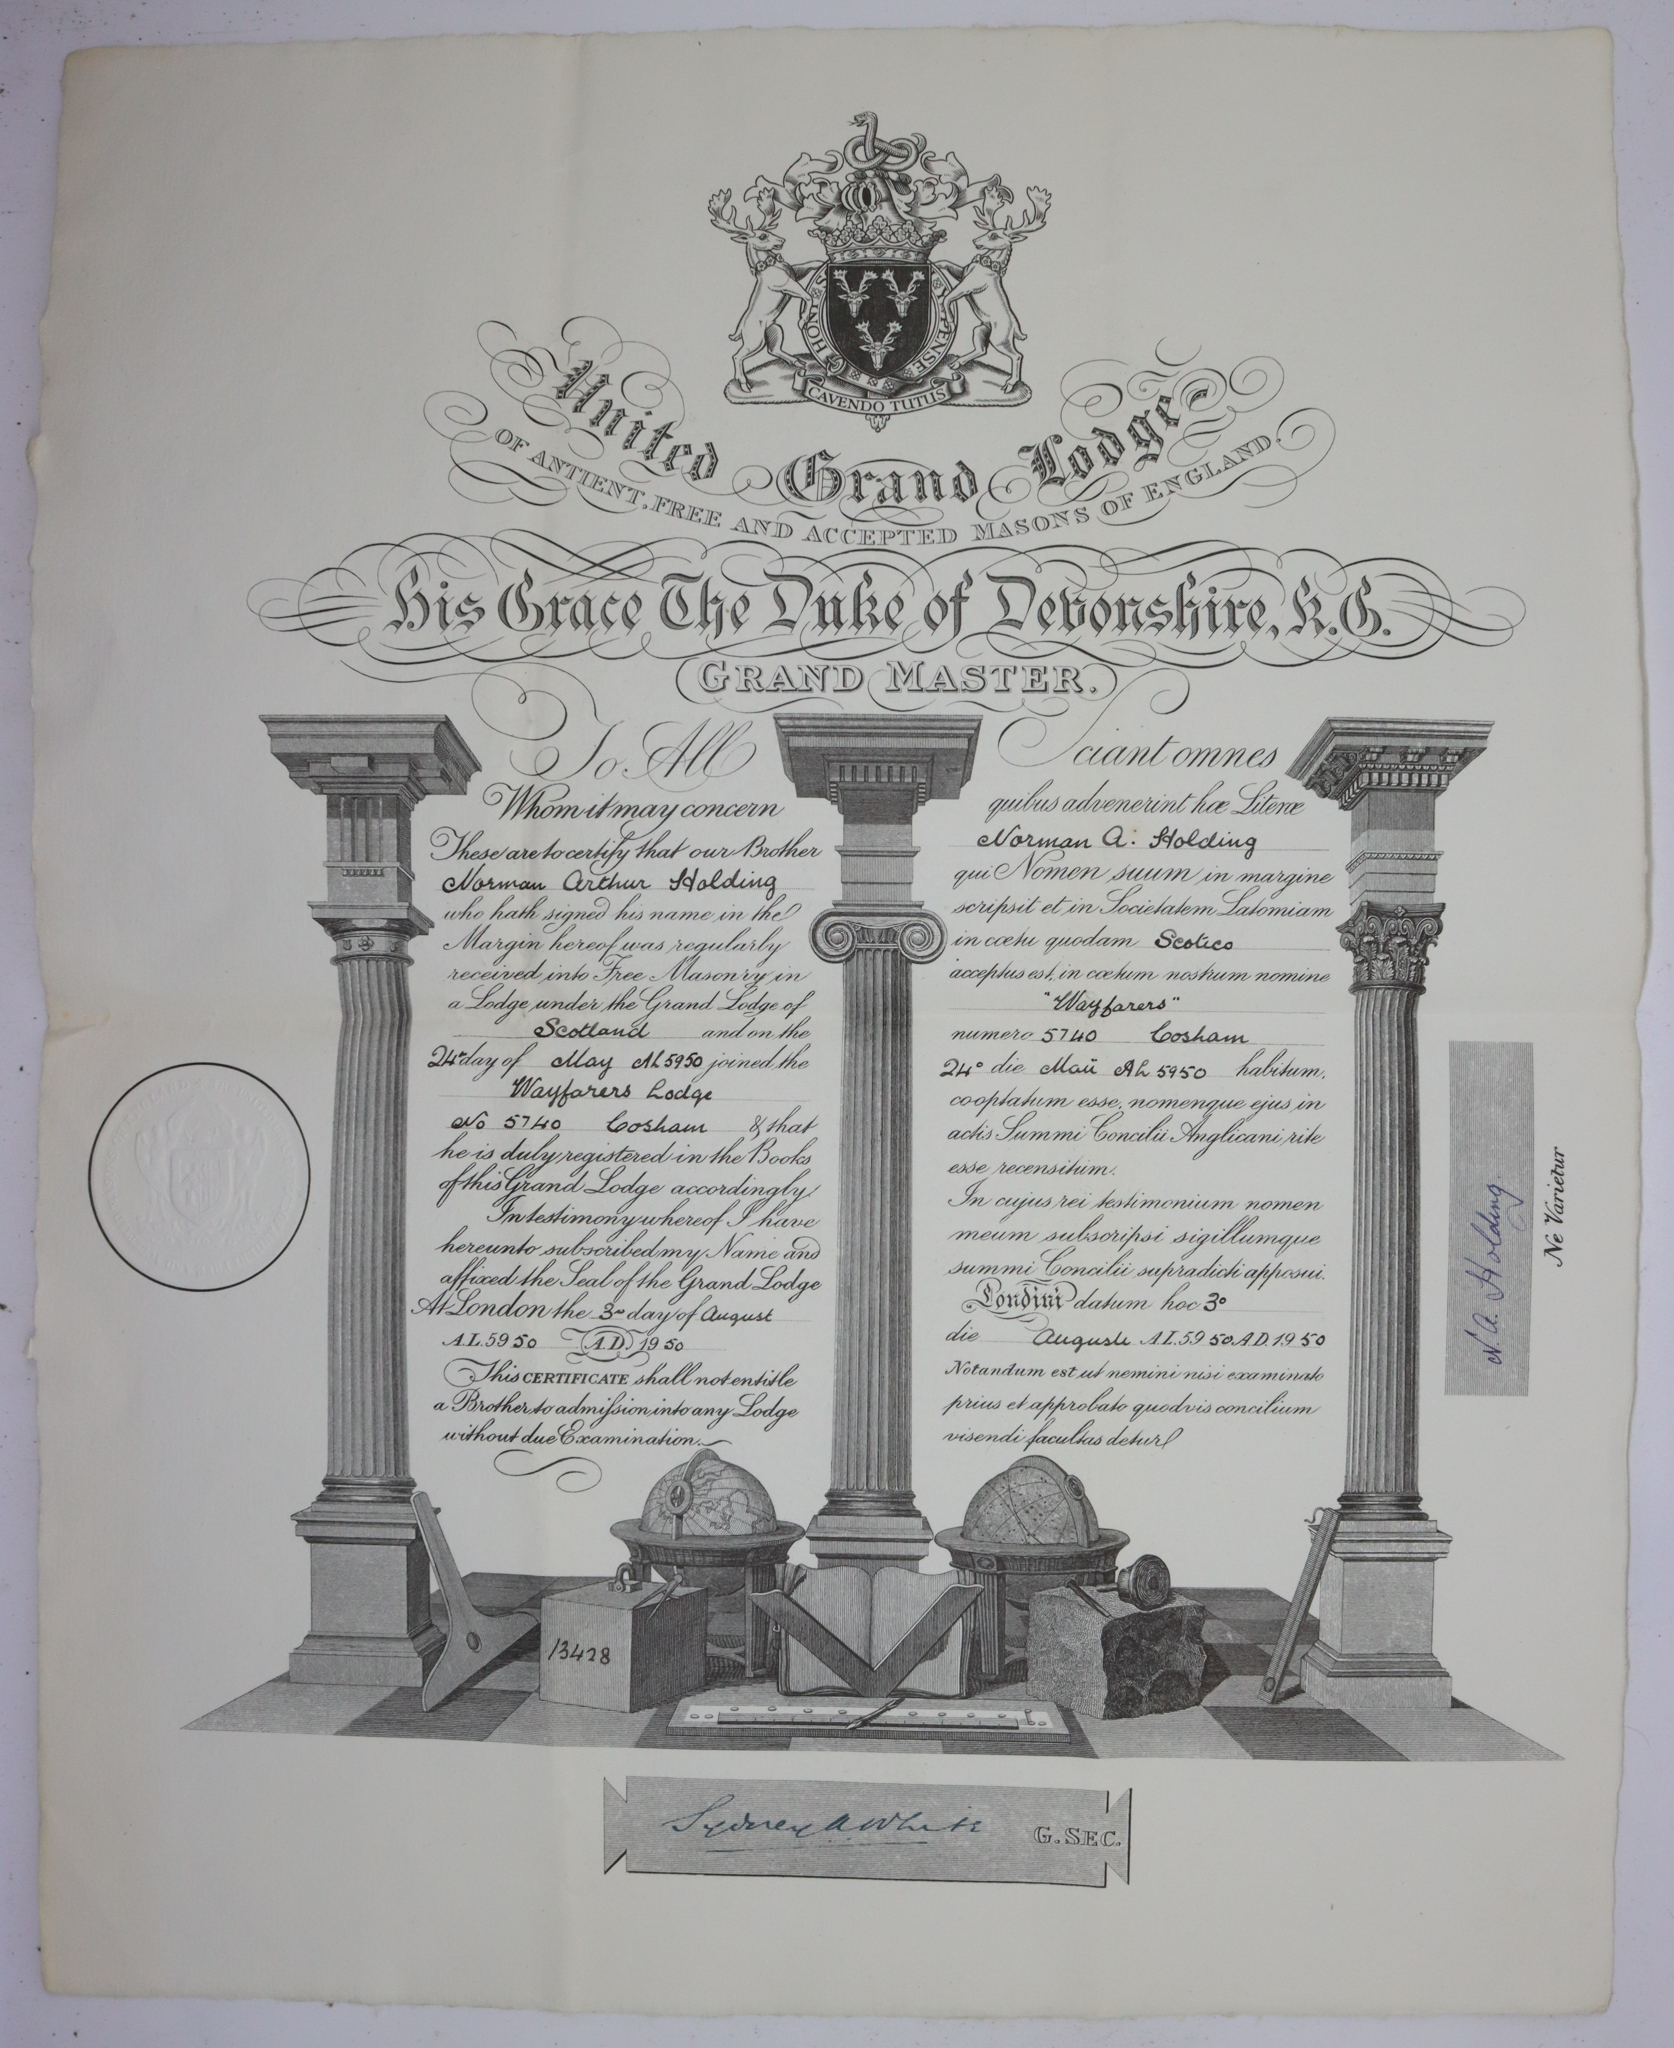 HONI
PENSE
CAVENDO TUTUS
United Grand Lodge
OF ANTIENT, FREE AND ACCEPTED MASONS OF ENGLAND.
His Grace The Duke of Devonshire, K.G.
GRAND MASTER.
To All
Whom it may concern
These are to certify that our Brother
Norman Arthur Holding
who hath signed his name in the
Margin hereof was regularly
received into Free Masonry in
a Lodge under the Grand Lodge of
Scotland and on the
24th day of May AL 5950 joined the
Wayfarers Lodge
No 5740 Cosham & that
he is duly registered in the Books
of this Grand Lodge accordingly
In testimony whereof I have
hereunto subscribed my Name and
affixed the Seal of the Grand Lodge
At London the 3rd day of August
A.L. 5950 A.D. 1950
This CERTIFICATE shall not entitle
a Brother to admission into any Lodge
without due Examination.
Sciant omnes
quibus advenerint hæ Literæ
Norman A. Holding
qui Nomen suum in margine
scripsit et in Societatem Latomiam
in cœtu quodam Scotico
acceptus est, in cœtum nostrum nomine
"Wayfarers"
numero 5740 Cosham
24° die Maii AL 5950 habitum,
cooptatum esse, nomenque ejus in
actis Summi Concilii Anglicani rite
esse recensitum.
In cujus rei testimonium nomen
meum subscripsi sigillumque
summi Concilii supradicti apposui.
Londini datum hoc 3°
die Augusti A.L. 5950. A.D. 1950
Notandum est ut nemini nisi examinato
prius et approbato quodvis concilium
visendi facultas detur
N. A. Holding
Ne Varietur
13428
Sydney A. White G. SEC.